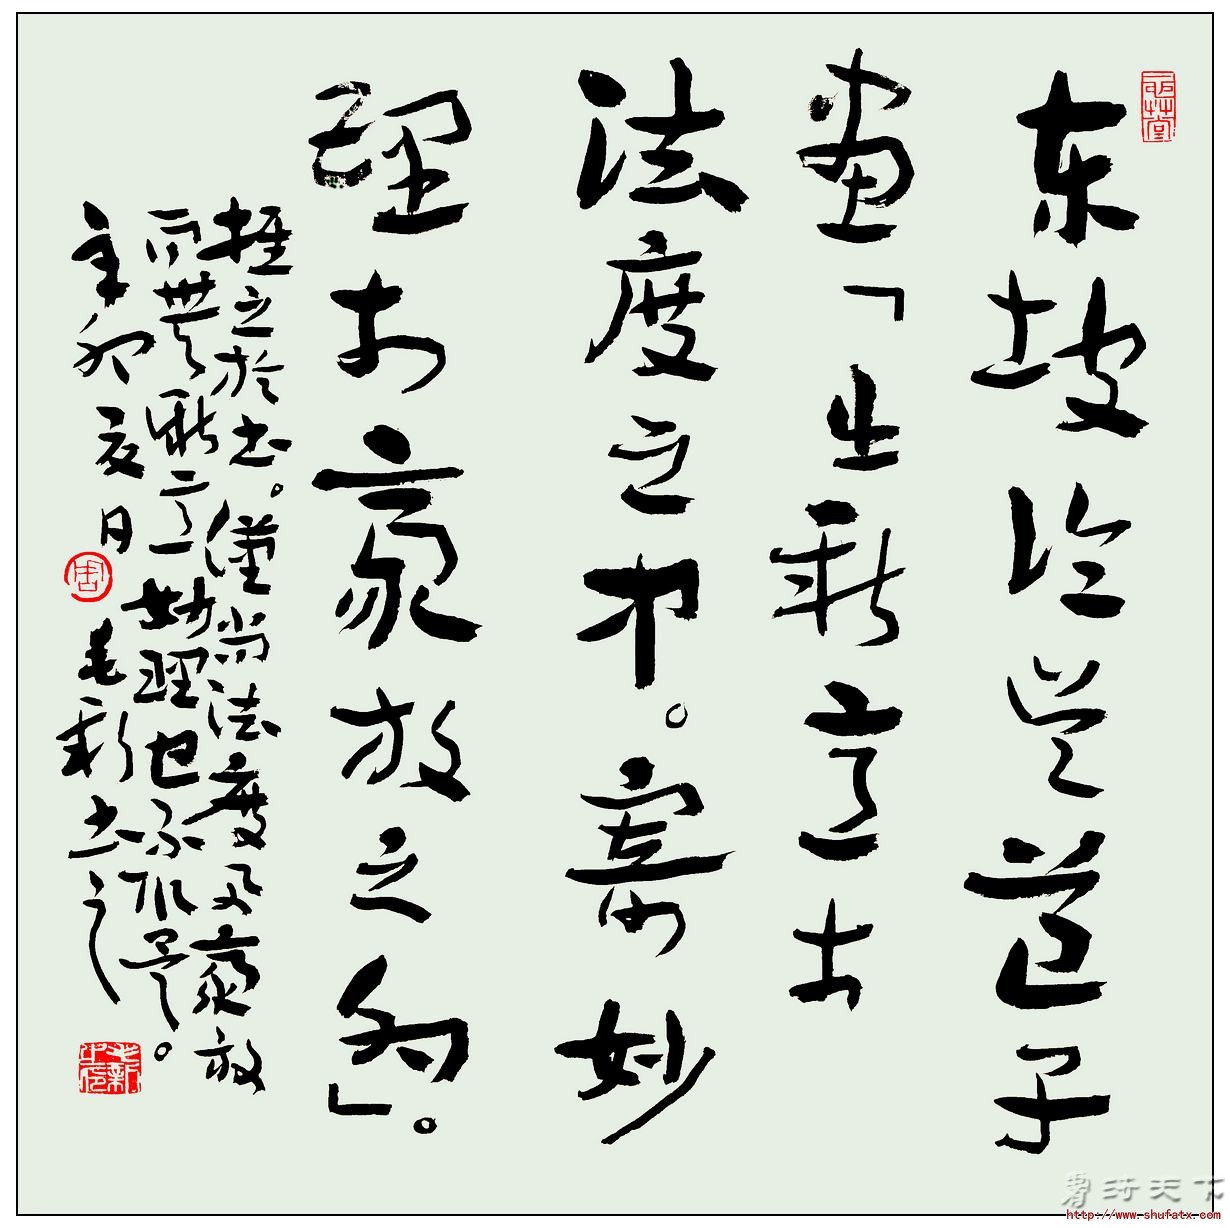 东坡论吴道子
画「出新意于
法度之中。寄妙
理于豪放之外」。
推之於书。僅尚法度及豪放
而無新意妙理也不
辛卯夏日
毛新书之
書法天下
http://www.shufatx.com